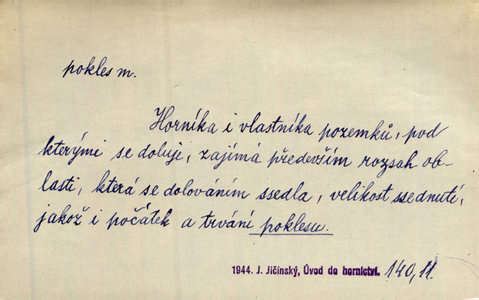 pokles m.
Horníka i vlastníka pozemků, pod
kterými se dobuje, zajímá především rozsah ob-
lasti, která se dolováním ssedla, velikost ssednutí,
jakož i počátek a trvání poklesu.
1944. J. Jičínský, Úvod do hornictví. 140, 11.